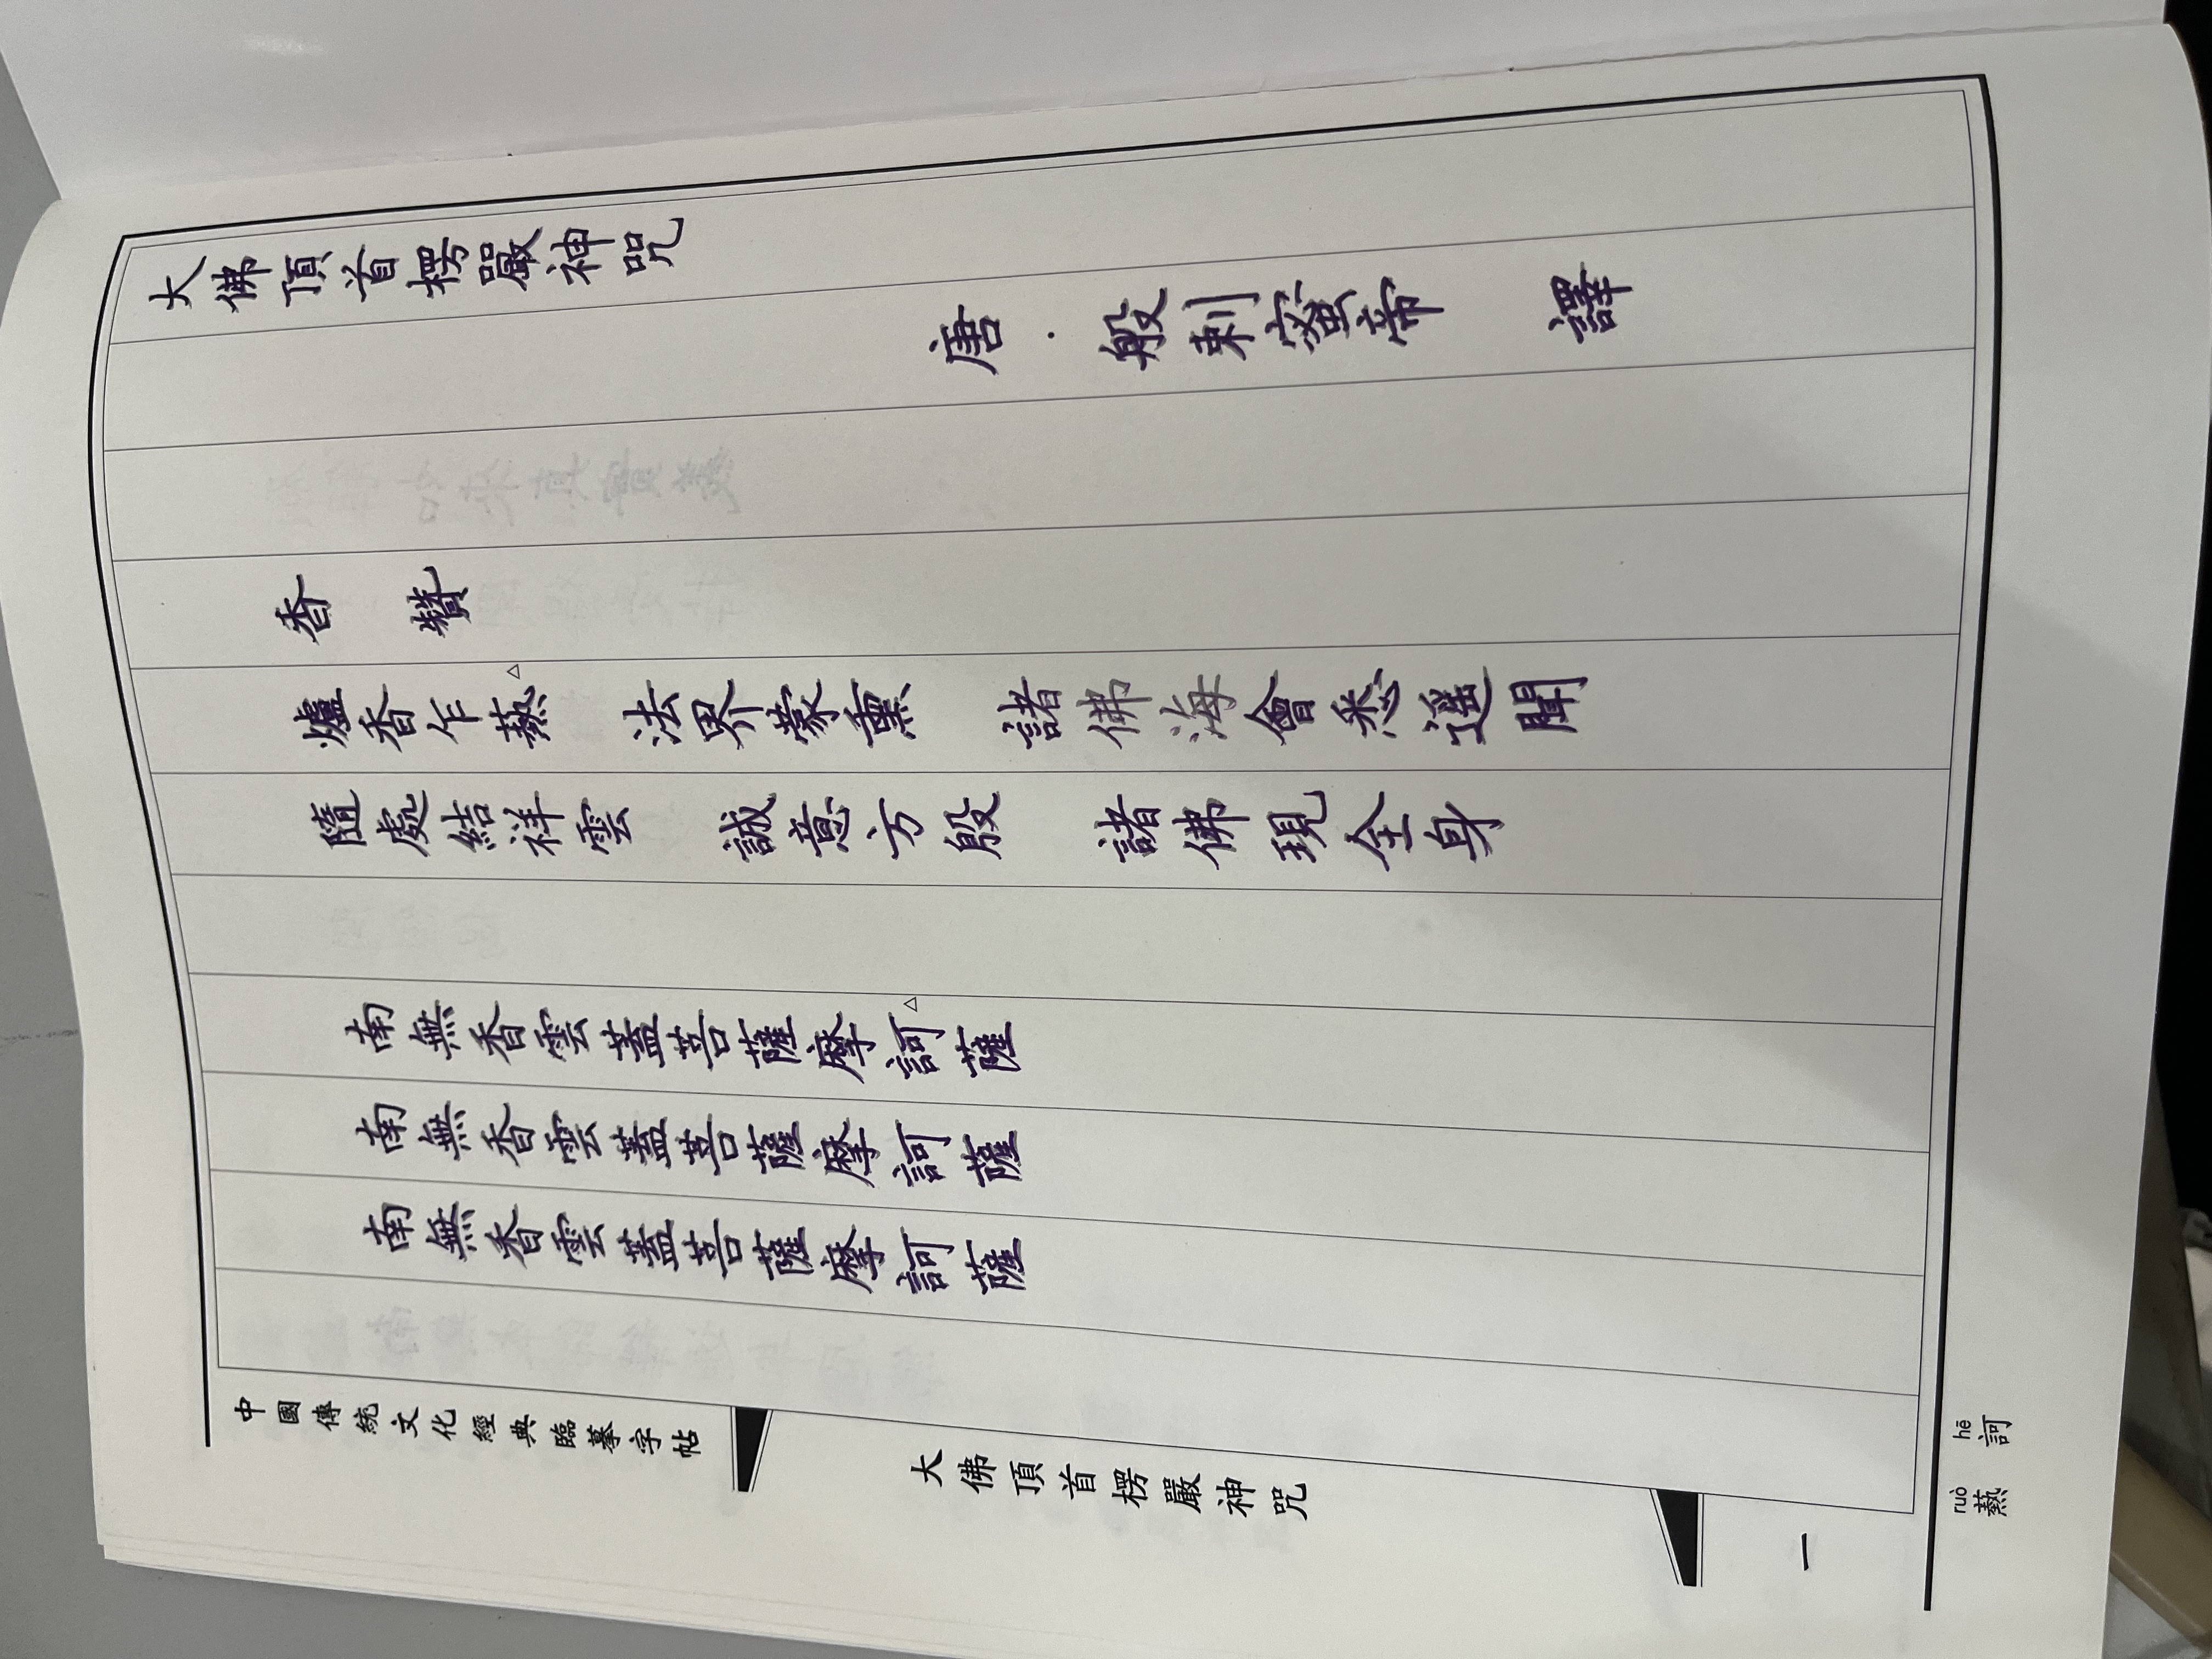 大佛頂首楞嚴神咒
唐·般剌蜜帝 譯
香 贊
爐香乍爇 法界蒙熏 諸佛海會悉遥聞
隨處結祥雲 誠意方殷 諸佛現全身
南無香雲蓋菩薩摩訶薩
南無香雲蓋菩薩摩訶薩
南無香雲蓋菩薩摩訶薩
中國傳統文化經典臨摹字帖
大佛頂首楞嚴神咒
一
ruò hē
爇 訶